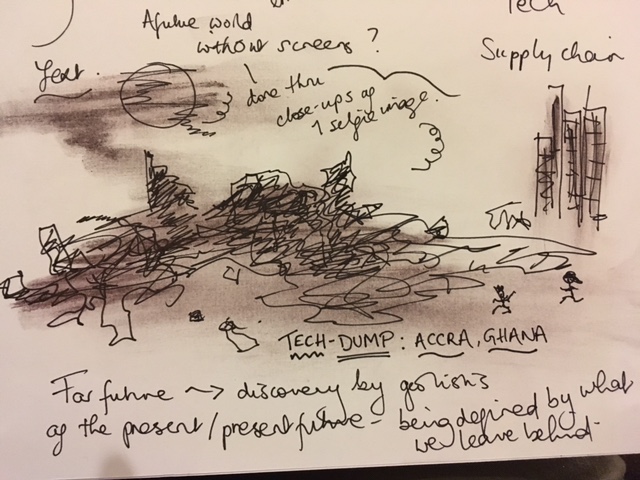 A future world
without screens?
Text.
done thru
close-ups of
1 selfie image.
Tech
Supply chain
TECH-DUMP: ACCRA, GHANA
Far future → discovery by
of the present/present future - being defined by what
we leave behind-